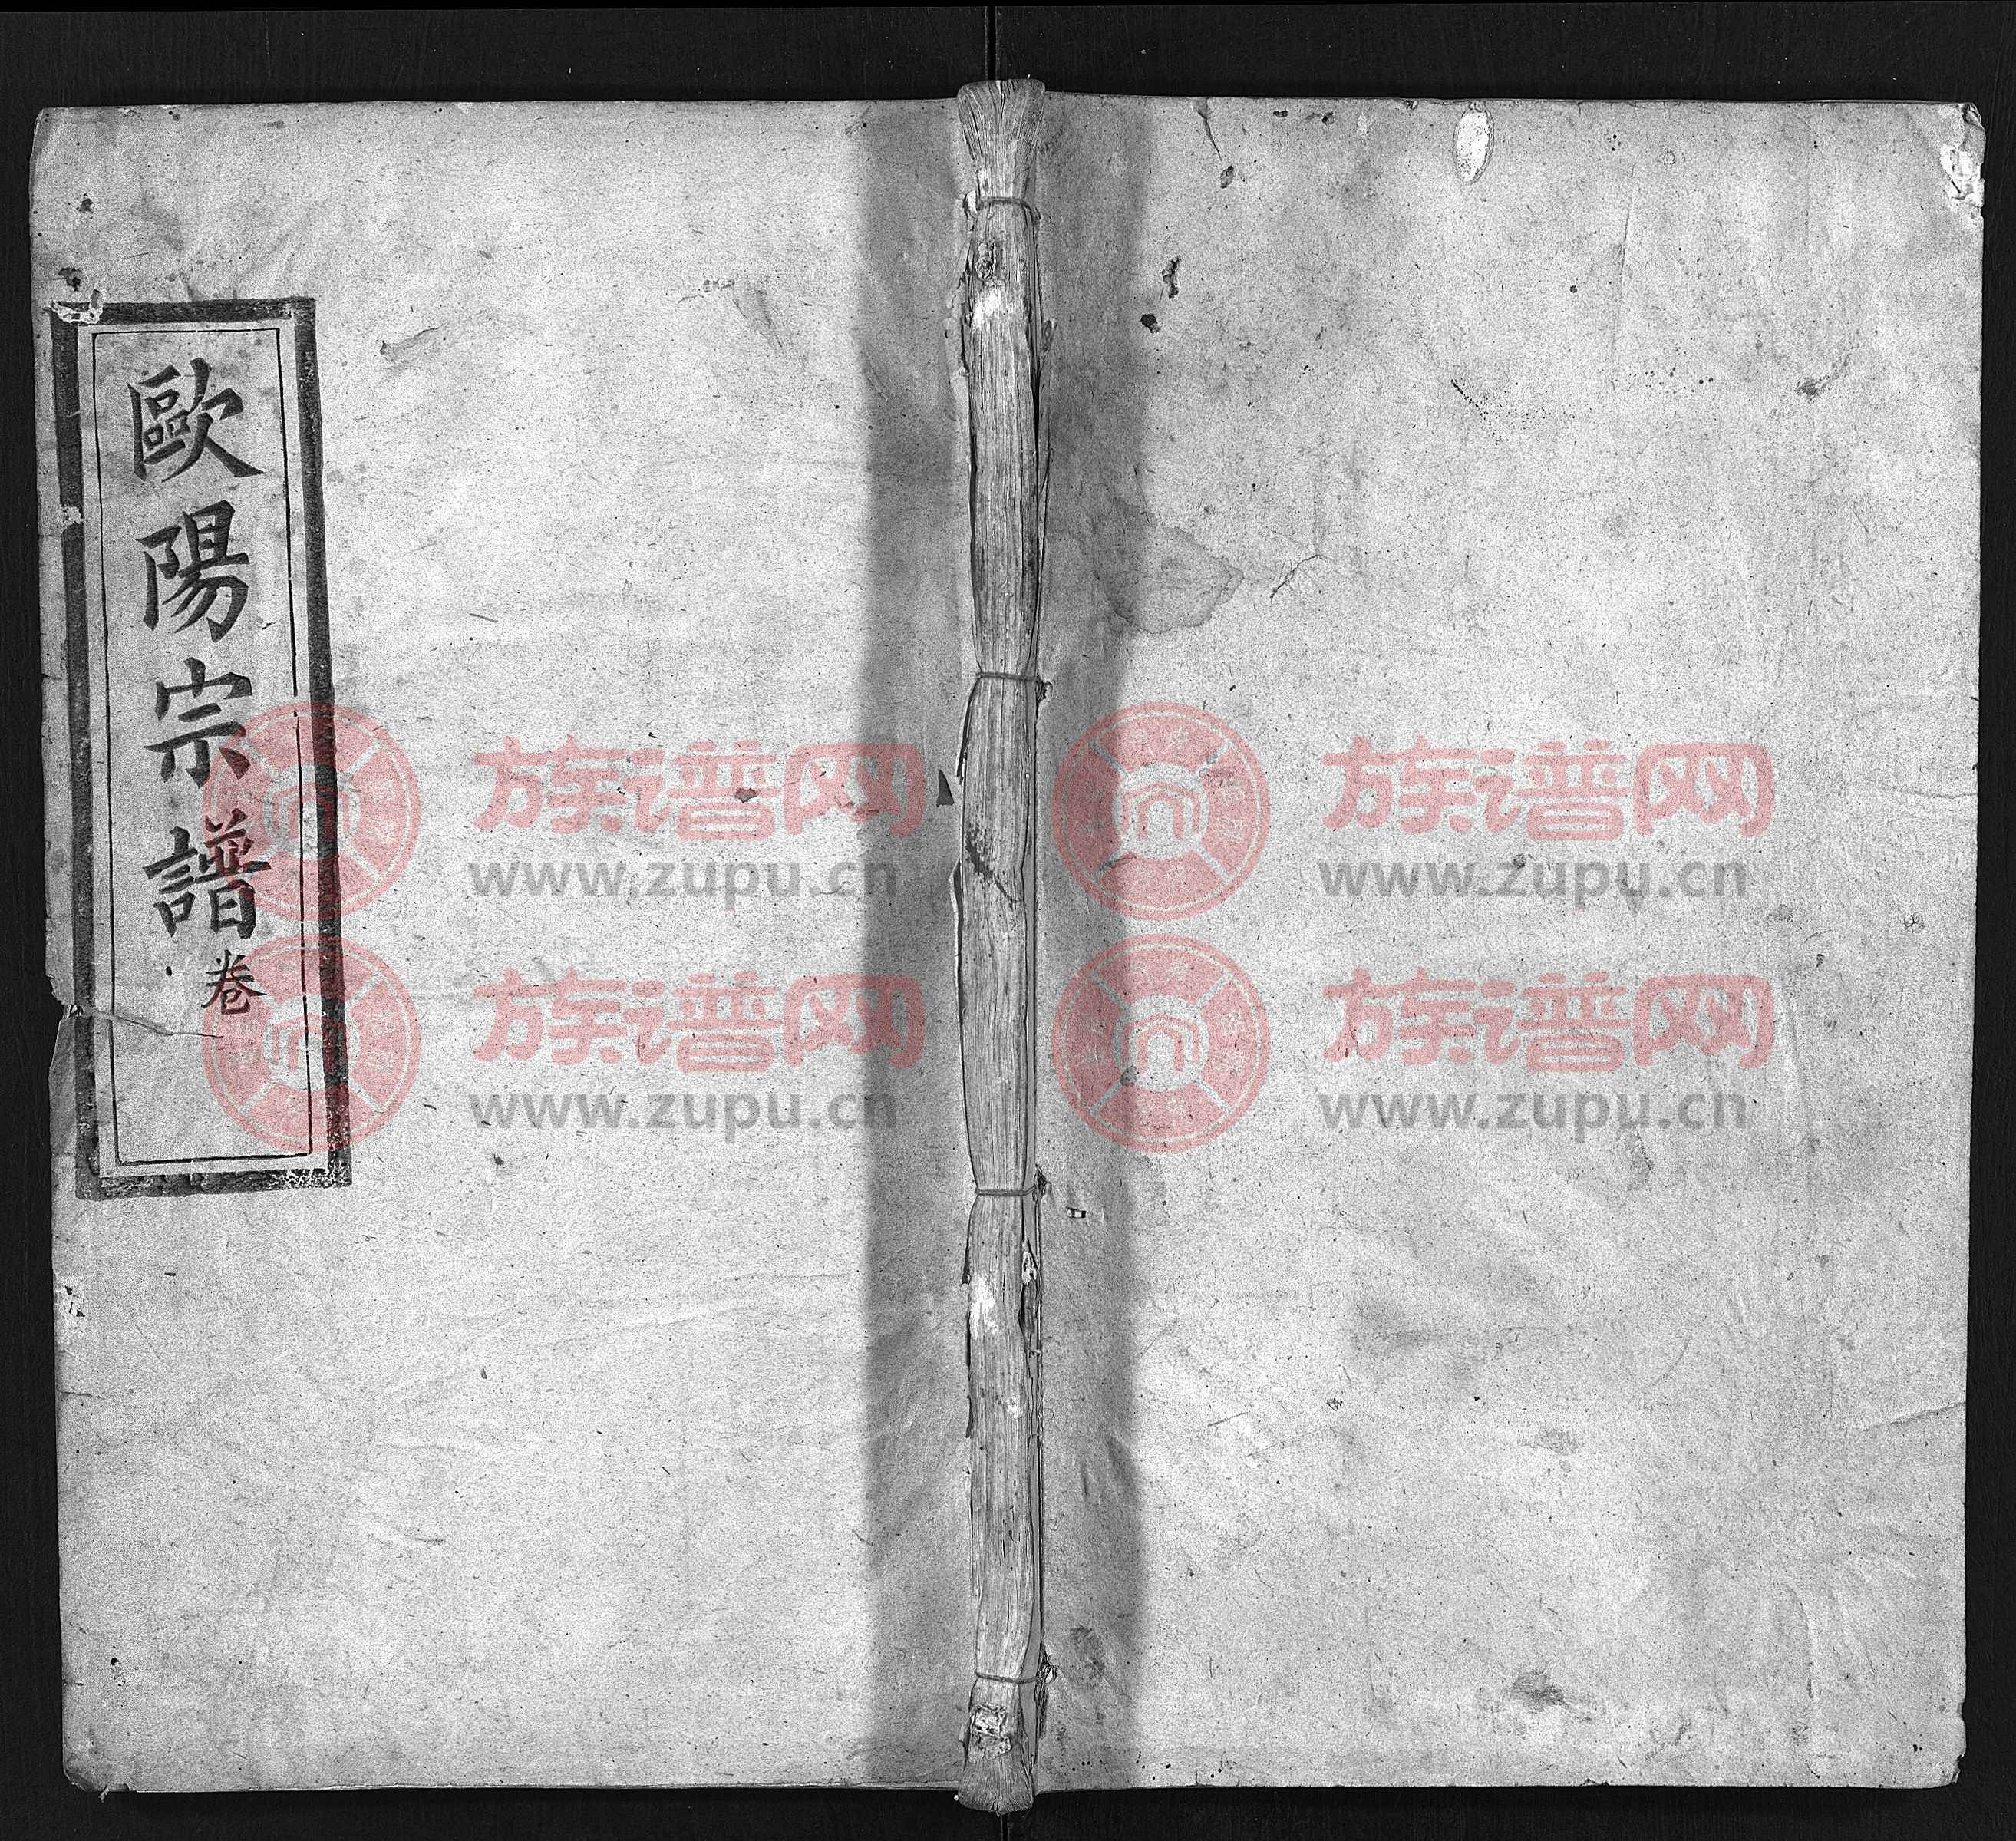 歐陽宗譜卷
族谱网
www.zupu.cn
族谱网
www.zupu.cn
族谱网
www.zupu.cn
族谱网
www.zupu.cn